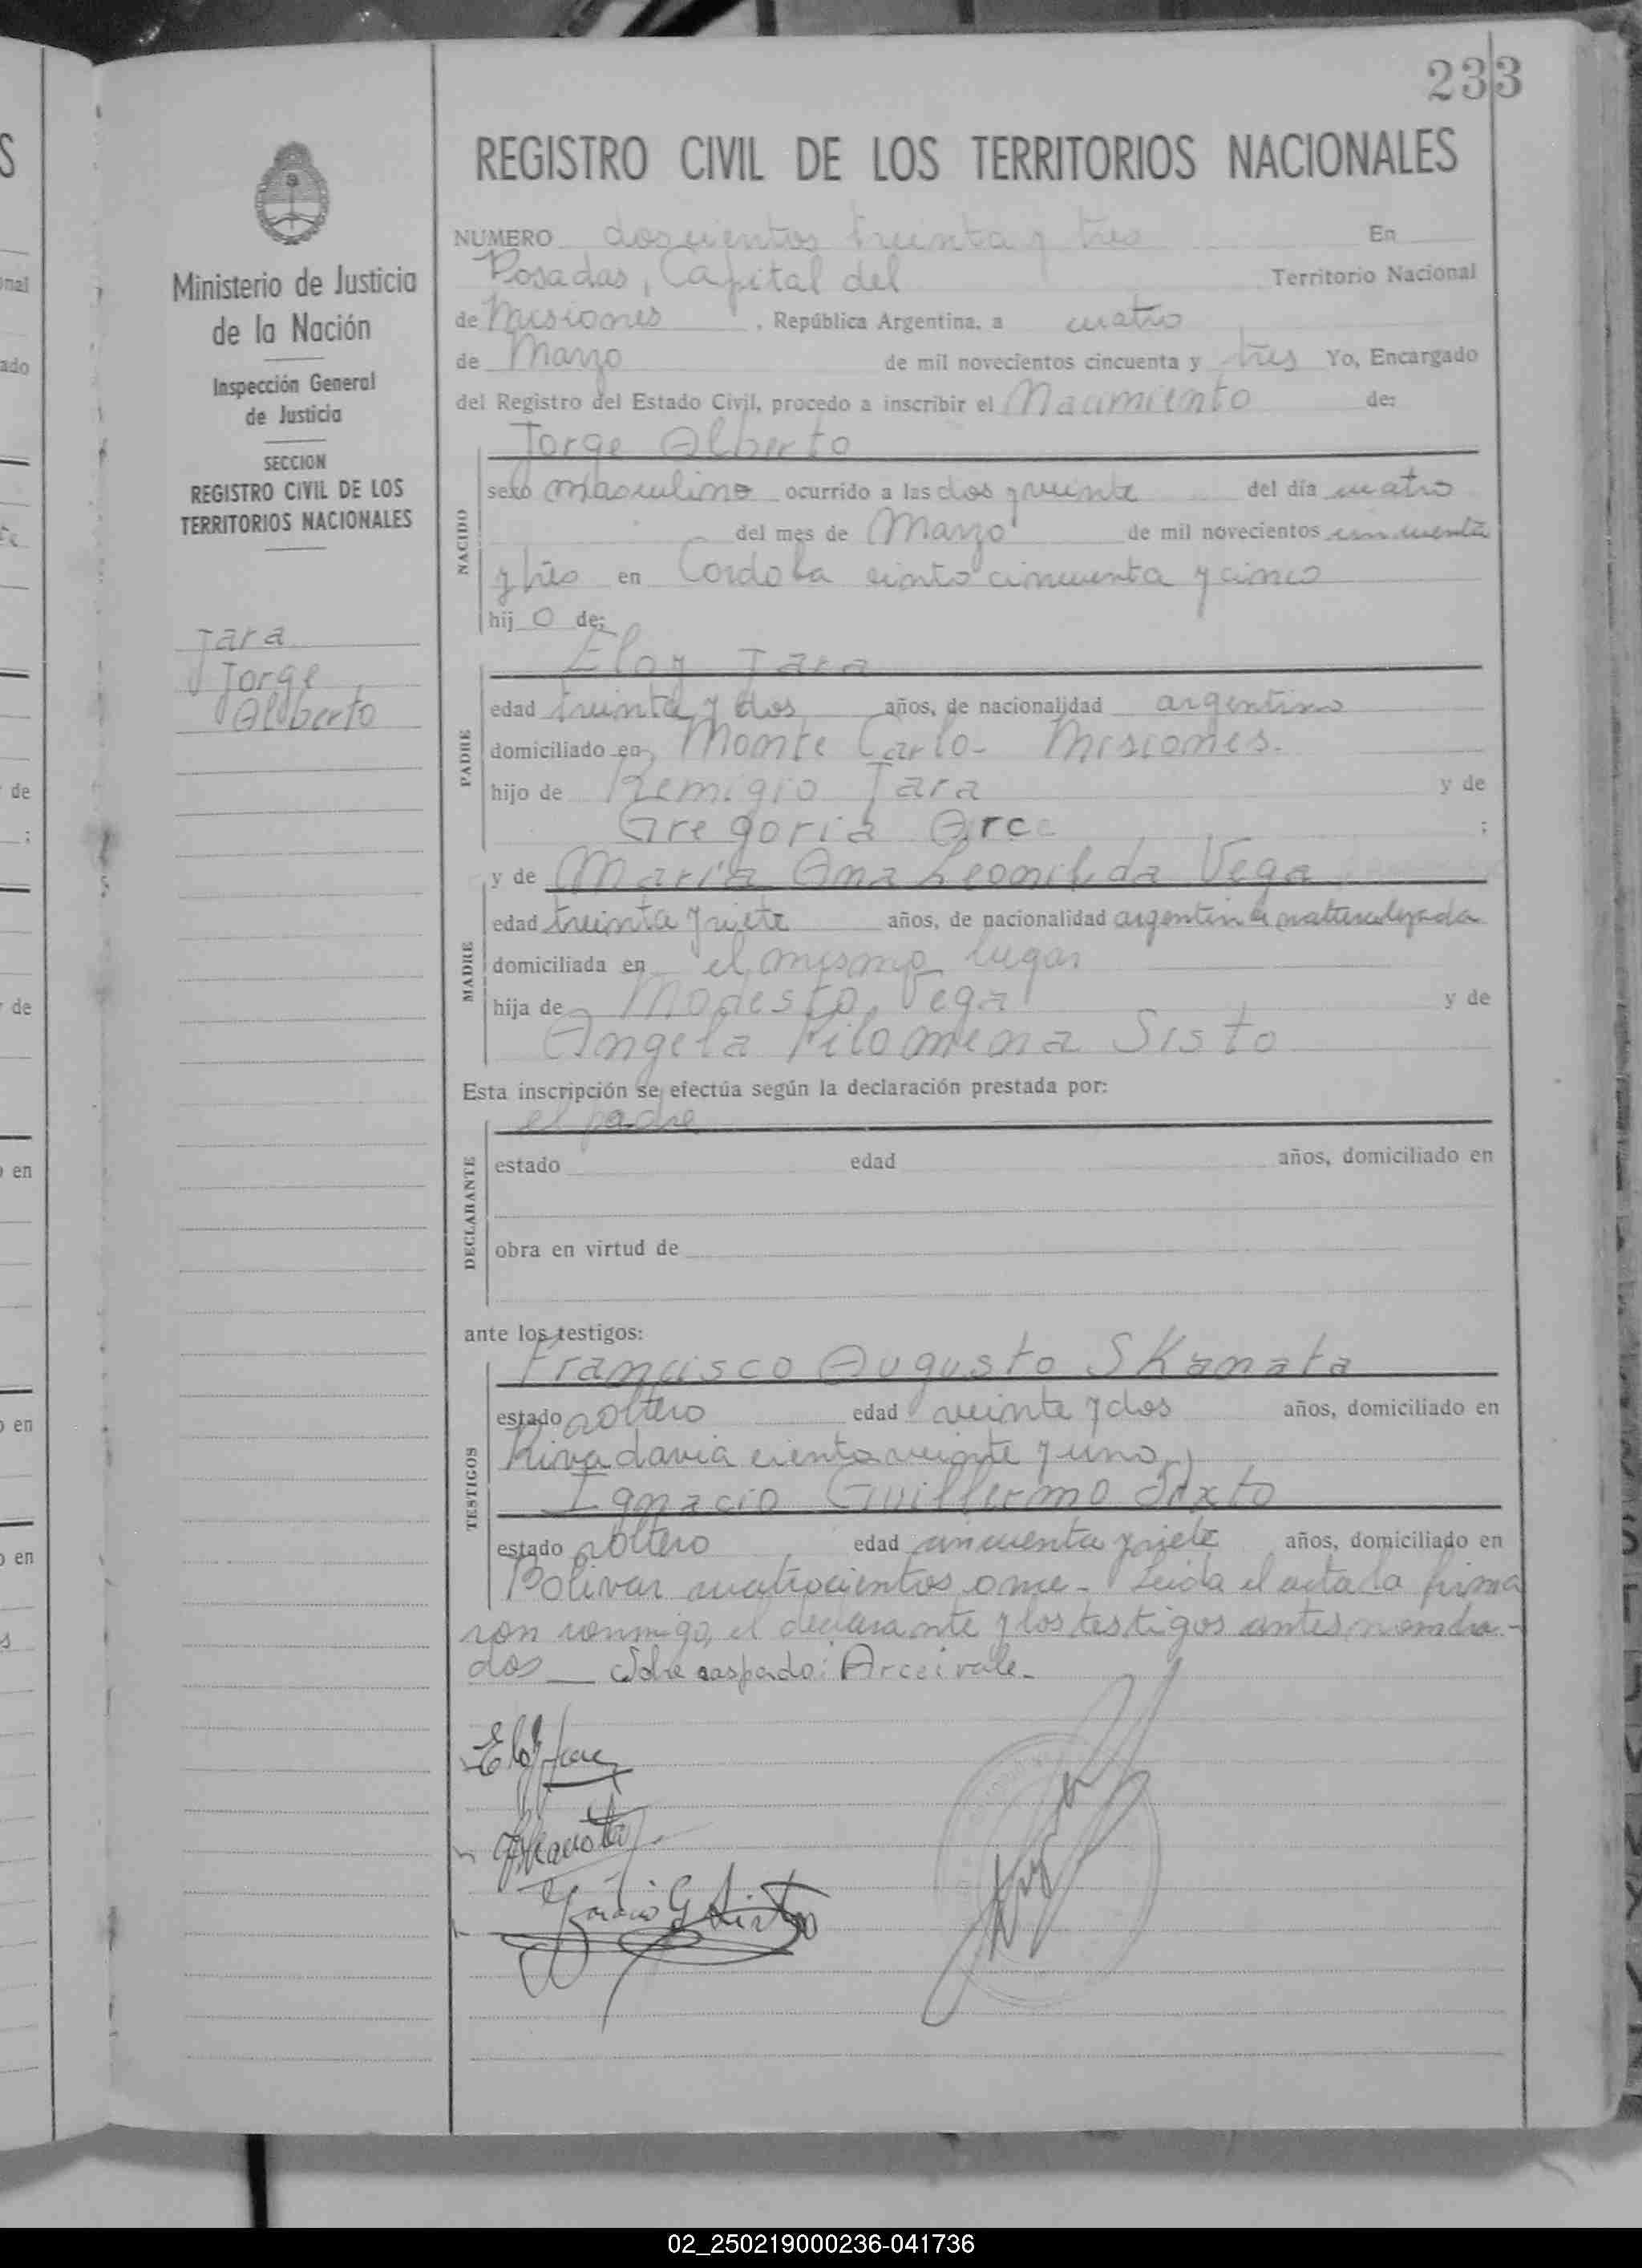 233
REGISTRO CIVIL DE LOS TERRITORIOS NACIONALES
Ministerio de Justicia
de la Nación
Inspección General
de Justicia
SECCION
REGISTRO CIVIL DE LOS
TERRITORIOS NACIONALES
Jara
Jorge
Alberto
NUMERO doscientos treinta y tres En
Posadas, Capital del Territorio Nacional
de Misiones, República Argentina, a cuatro
de Marzo de mil novecientos cincuenta y tres Yo, Encargado
del Registro del Estado Civil, procedo a inscribir el Nacimiento de:
Jorge Alberto
NACIDO
sexo masculino ocurrido a las dos y veinte del día cuatro
del mes de Marzo de mil novecientos cincuenta
y tres en Cordoba ciento cincuenta y cinco
hij o de:
Eloy Jara
PADRE
edad treinta y dos años, de nacionalidad argentino
domiciliado en Monte Carlo - Misiones.
hijo de Remigio Jara y de
Gregoria Arce ;
y de María Ana Leonilda Vega
MADRE
edad treinta y siete años, de nacionalidad argentina naturalizada
domiciliada en el mismo lugar
hija de Modesto Vega y de
Angela Filomena Sisto
Esta inscripción se efectúa según la declaración prestada por:
el padre
DECLARANTE
estado edad años, domiciliado en
obra en virtud de
ante los testigos:
Francisco Augusto Skanata
TESTIGOS
estado soltero edad veinte y dos años, domiciliado en
Rivadavia ciento veinte y uno
Ignacio Guillermo Sixto
estado soltero edad cincuenta y siete años, domiciliado en
Bolivar cuatrocientos once - Leida el acta la firma
ron conmigo, el declarante y los testigos antes nombra-
dos — Sobre raspado: Arce: vale.-
Eloy Jara
Ignacio G Sixto
02_250219000236-041736